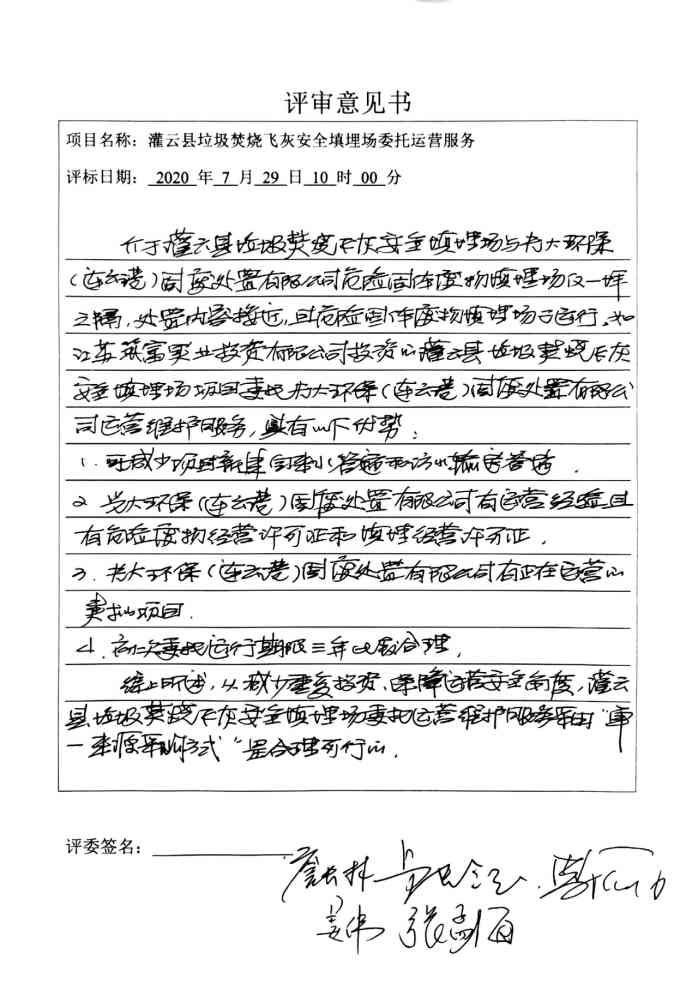 评审意见书
项目名称：灌云县垃圾焚烧飞灰安全填埋场委托运营服务
评标日期： 2020 年 7 月 29 日 10 时 00 分
介于灌云县垃圾焚烧飞灰安全填埋场与光大环保
（连云港）固废处置有限公司危险固体废物填埋场仅一坪
之隔，处置内容接近，且危险固体废物填埋场已运行。如
江苏筑富实业投资有限公司投资的灌云县垃圾焚烧飞灰
安全填埋场项目委托光大环保（连云港）固废处置有限公
司运营维护服务，具有以下优势：
1. 可减少项目新建 管道
2. 光大环保（连云港）固废处置有限公司有运营经验且
有危险废物经营许可证和填埋经营许可证．
3. 光大环保（连云港）固废处置有限公司有正在运营的
类似项目．
4. 委托运行期限三年比较合理，
综上所述，从减少重复投资、保障运营安全角度，灌云
县垃圾焚烧飞灰安全填埋场委托运营维护服务采用“单
一来源采购方式”是合理可行的．
评委签名：